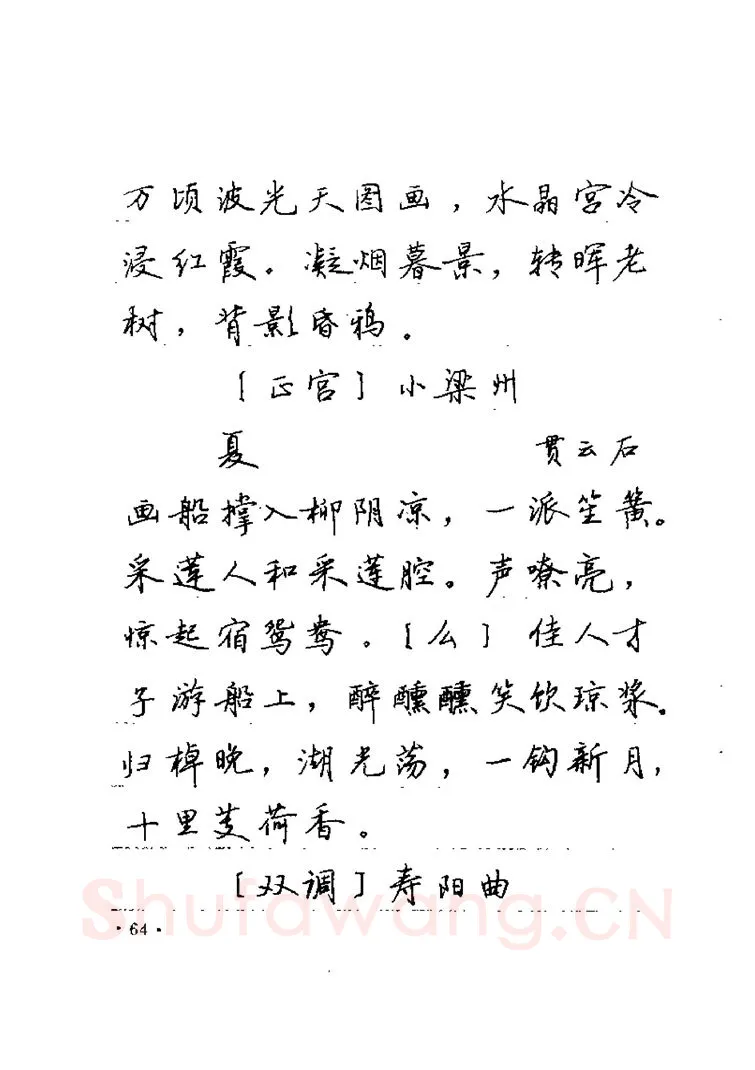 万顷波光天图画，水晶宫冷
浸红霞。凝烟暮景，转晖老
树，背影昏鸦。
［正宫］小梁州
夏 贯云石
画船撑入柳阴凉，一派笙簧。
采莲人和采莲腔。声嘹亮，
惊起宿鸳鸯。［么］佳人才
子游船上，醉醺醺笑饮琼浆。
归棹晚，湖光荡，一钩新月，
十里芰荷香。
［双调］寿阳曲
Shufawang.CN
·64·